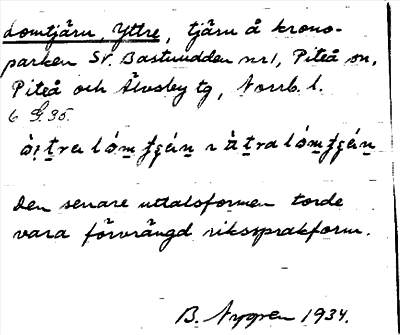 Lomtjärn, Yttre, tjärn å krono-
parken SV. Bastuudden nr 1, Piteå sn,
Piteå och Älvsby tg, Norrb. l.
6 G. 35.
den senare uttalsformen torde
vara förvrängd riksspråkform.
B. Nygren 1934.